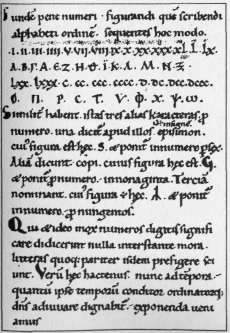 unde pene numeri figurandi quā scribendi
alphabeti ordinē sequentes hoc modo.
·I·II·III·IIII·V·VI·VII·VIII·IX·X·XX·XXX·XL·L·LX·
Α·Β·Γ·Δ·Ε·Ϛ·Ζ·Η·Θ·Ι·Κ·Λ·Μ·Ν·Ξ·
LXX·LXXX·C·CC·CCC·CCCC·D·DC·DCC·DCCC·
Ο·Π·Ρ·С·Τ·Υ·Φ·Χ·Ψ·Ω·
numero· una dicit apud illos· episimon·
cui figura est hec· Ϛ· &ponit innumero
Aliā dicunt· copi· cuiuſ figura hec est·
&ponit numero· innonaginta· Terciā
nominant· cui figura ē hec· &ponit
innumero· nungentos·
Qui &ideo mox numeros digitis signifi
care didicerunt· nulla interstante mora·
litteras quoq; pariter iisdem prefigere sci
unt· Verū hec hactenus· nunc ad tēpora·
quantū ipse temporū conditor ordinatorq;
dns adiuvare dignabit· exponenda veni
amus